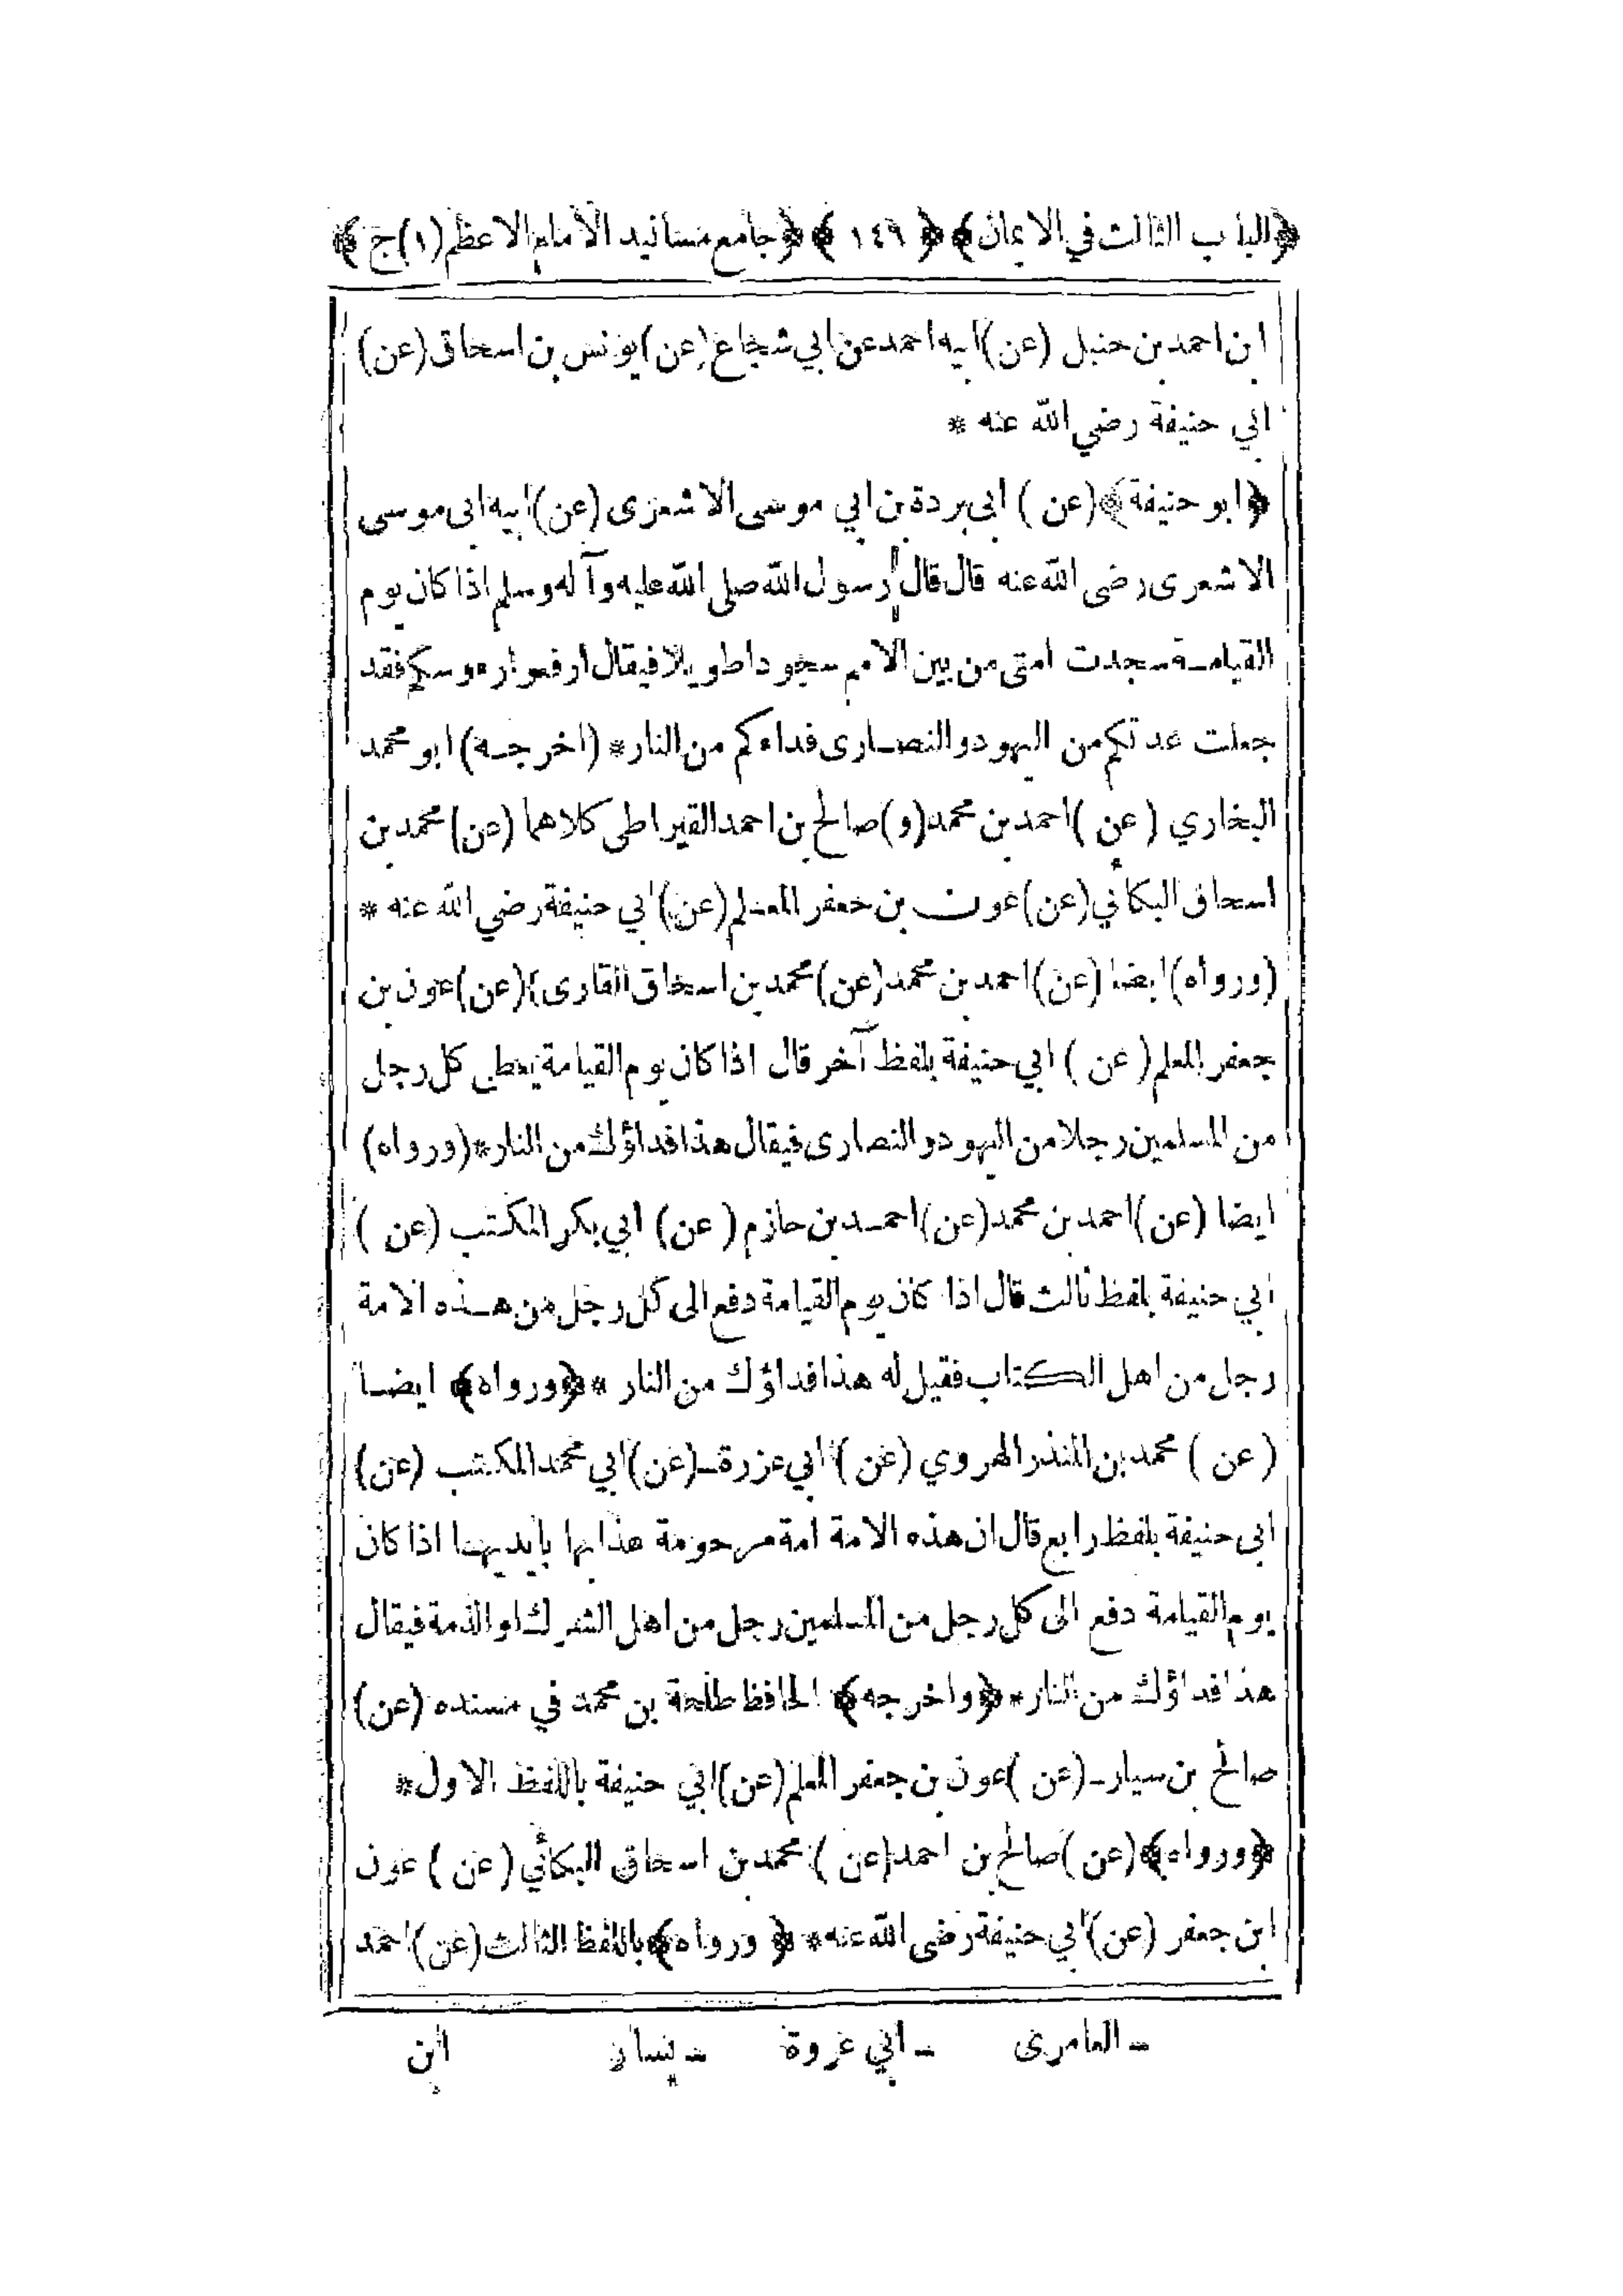 ﴿الباب الثالث في الايمان﴾ ﴿١٤٩﴾ ﴿جامع مسانيد الامام الاعظم (١) ج﴾
ابن احمد بن حنبل (عن) ابيه احمد عن ابي شجاع (عن) يونس بن اسحاق (عن)
ابي حنيفة رضي الله عنه *
﴿ابو حنيفة﴾ (عن) ابى بردة بن ابي موسى الاشعرى (عن) ابيه ابى موسى
الاشعرى رضى الله عنه قال قال رسول الله صلى الله عليه وآله وسلم اذا كان يوم
القيامة سجدت امتى من بين الامم سجودا طويلا فيقال ارفعوا رءوسكم فقد
جعلت عدتكم من اليهود والنصارى فداءكم من النار * (اخرجه) ابو محمد
البخاري (عن) احمد بن محمد (و) صالح بن احمد القيراطى كلاهما (عن) محمد بن
اسحاق البكائي (عن) عون بن جعفر المعلم (عن) ابي حنيفة رضي الله عنه *
(ورواه) ايضا (عن) احمد بن محمد (عن) محمد بن اسحاق القارى (عن) عون بن
جعفر المعلم (عن) ابي حنيفة بلفظ آخر قال اذا كان يوم القيامة يعطى كل رجل
من المسلمين رجلا من اليهود والنصارى فيقال هذا فداؤك من النار * (ورواه)
ايضا (عن) احمد بن محمد (عن) احمد بن حازم (عن) ابي بكر المكتب (عن)
ابي حنيفة بلفظ ثالث قال اذا كان يوم القيامة دفع الى كل رجل من هذه الامة
رجل من اهل الكتاب فقيل له هذا فداؤك من النار * ﴿ورواه﴾ ايضا
(عن) محمد بن المنذر الهروي (عن) ابي عزرة ـ (عن) ابي محمد المكتب (عن)
ابى حنيفة بلفظ رابع قال ان هذه الامة امة مرحومة عذابها بايديها اذا كان
يوم القيامة دفع الى كل رجل من المسلمين رجل من اهل الشرك او الذمة فيقال
هذا فداؤك من النار * ﴿واخرجه﴾ الحافظ طلحة بن محمد في مسنده (عن)
صالح بن سيار ـ (عن) عون بن جعفر المعلم (عن) ابي حنيفة باللفظ الاول *
﴿ورواه﴾ (عن) صالح بن احمد (عن) محمد بن اسحاق البكائي (عن) عون
ابن جعفر (عن) ابي حنيفة رضى الله عنه * ﴿ورواه﴾ باللفظ الثالث (عن) احمد
ـ العامرى ـ ابي عروة ـ يسار ابن